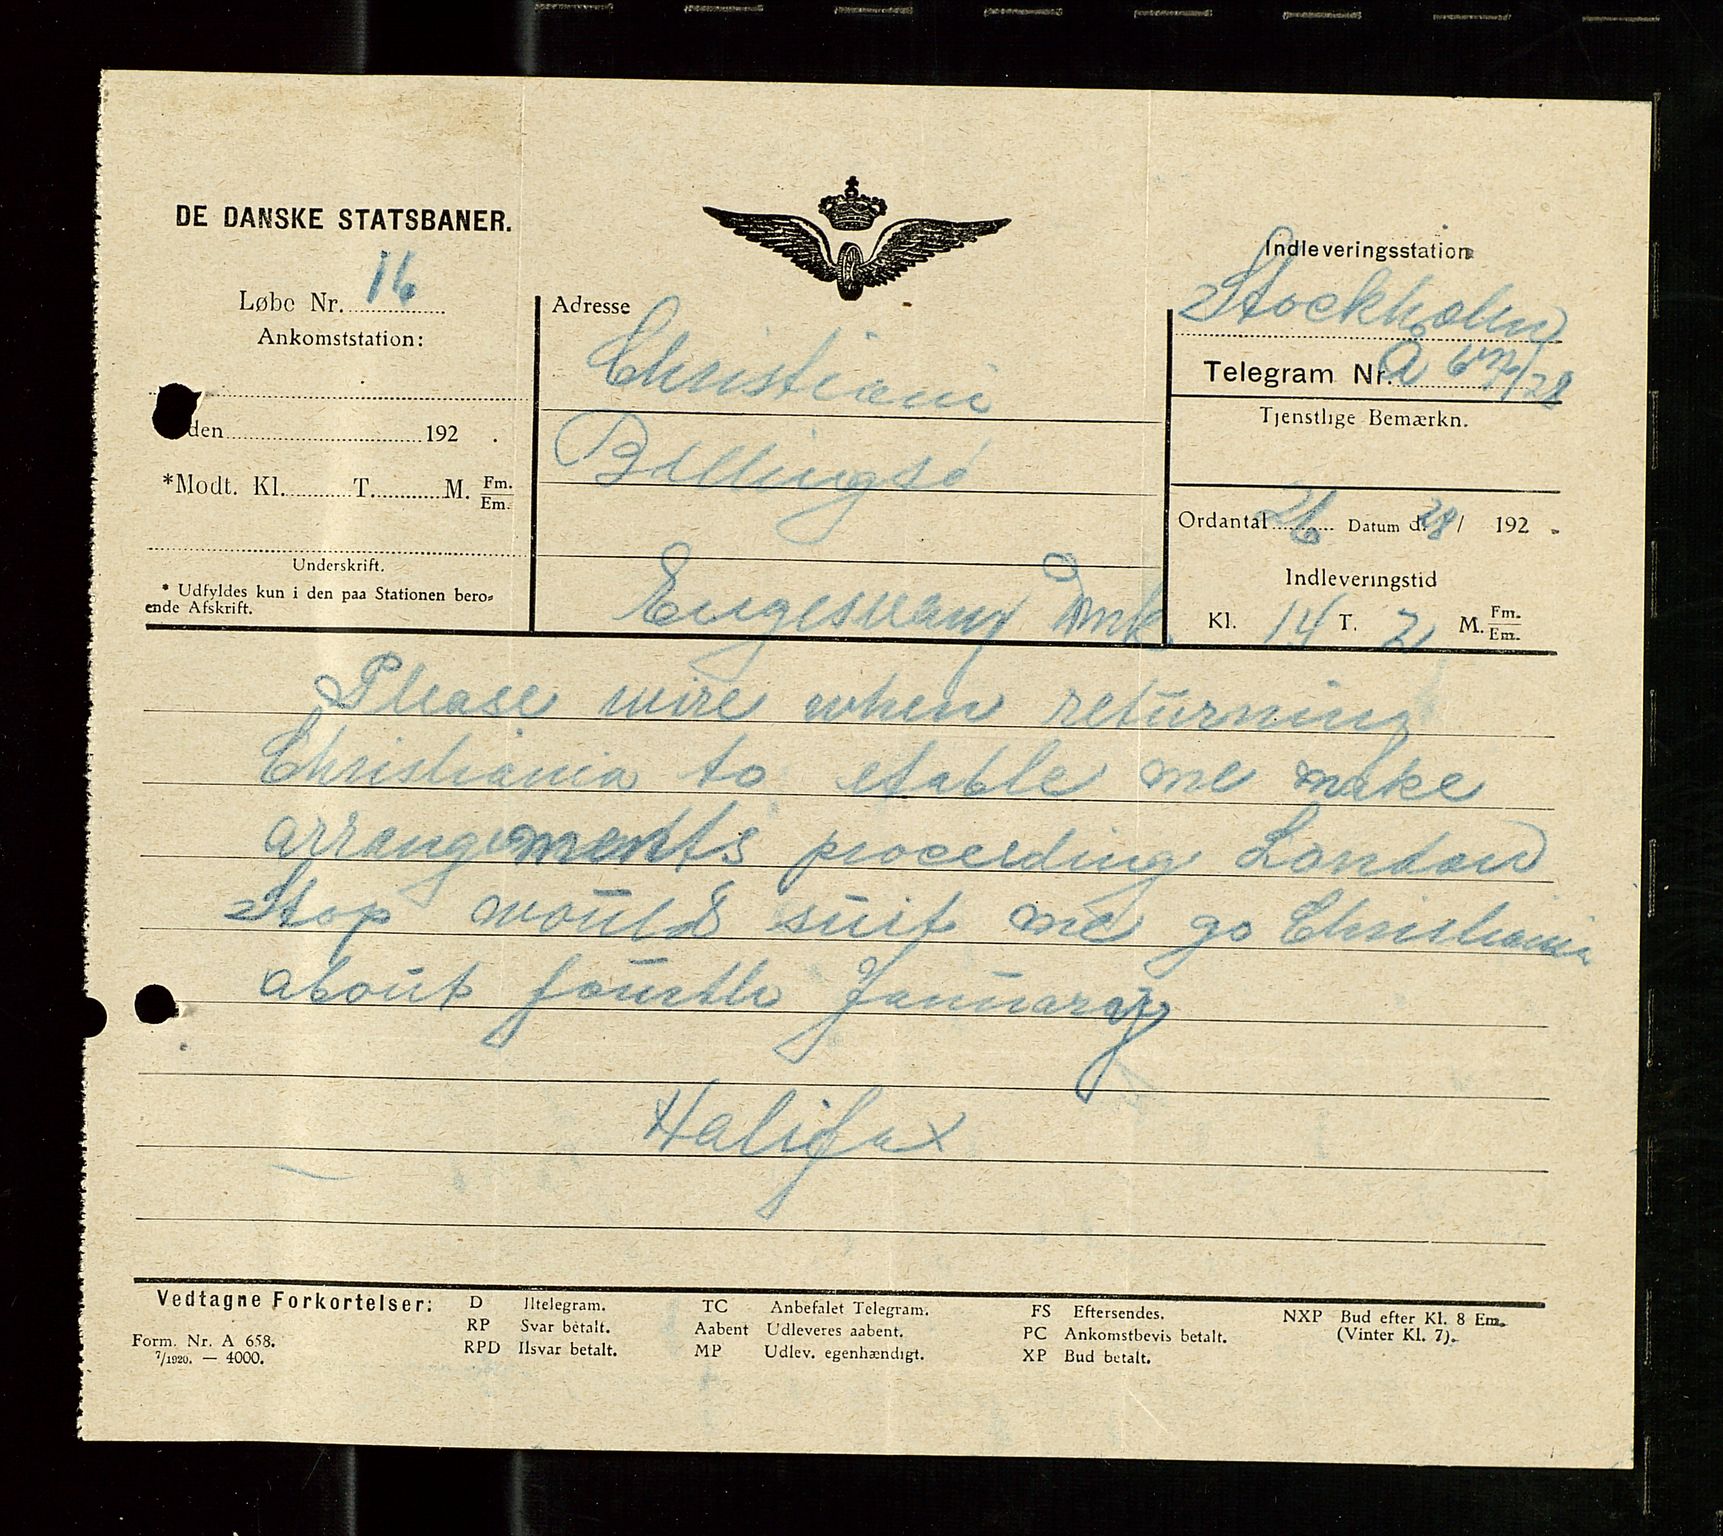 DE DANSKE STATSBANER.
Løbe Nr. 16
Ankomststation:
den 192 .
*Modt. Kl. T. M. Fm.
Em.
Underskrift.
* Udfyldes kun i den paa Stationen bero-
ende Afskrift.
Adresse
Christiani
Billingsö
Engesvang Dmk.
Indleveringsstation
Stockholm
Telegram Nr. A
Tjenstlige Bemærkn.
Ordantal 26 Datum d. 28/ 192 .
Indleveringstid
Kl. 14 T. 2 M. Fm.
Em.
Please wire when returning
Christiania to etable me make
arrangements proceeding London
Stop would suit me go Christiania
about fourth January
Halifax
Vedtagne Forkortelser:
Form. Nr. A 658.
7/1920. — 4000.
D Iltelegram.
RP Svar betalt.
RPD Ilsvar betalt.
TC Anbefalet Telegram.
Aabent Udleveres aabent.
MP Udlev. egenhændigt.
FS Eftersendes.
PC Ankomstbevis betalt.
XP Bud betalt.
NXP Bud efter Kl. 8 Em.
(Vinter Kl. 7).